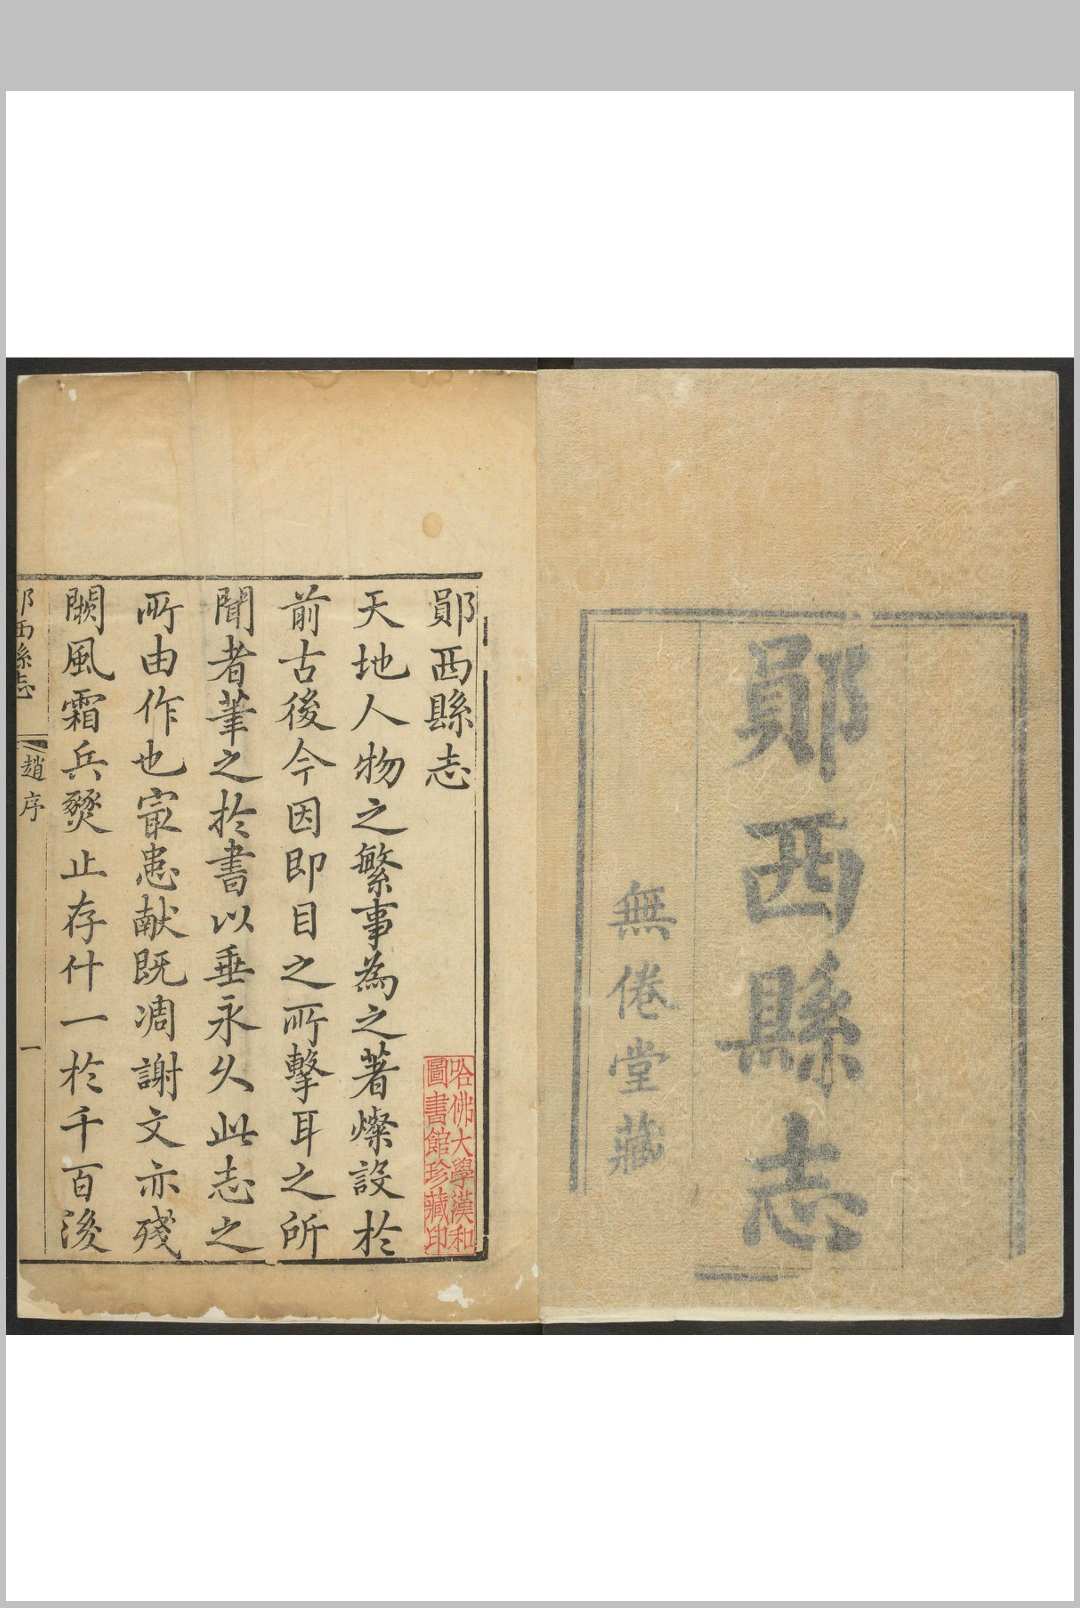 鄖西縣志
無倦堂藏
鄖西縣志
天地人物之繁事為之著燦設於
前古後今因即目之所擊耳之所
聞者筆之於書以垂永久此志之
所由作也寂患献既凋謝文亦殘
闕風霜兵燹止存什一於千百後
鄖西縣志
趙序
一
哈佛大學漢和
圖書館珍藏印